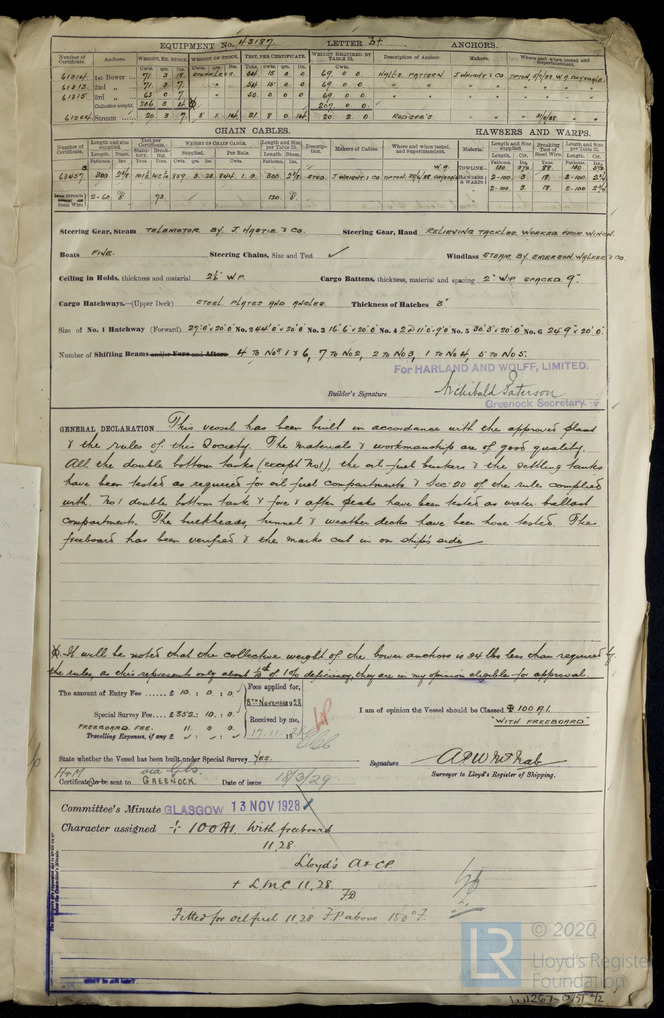 EQUIPMENT No. 43187. LETTER b† ANCHORS.
Number of Certificate. Anchors. WEIGHT, EX. STOCK. WEIGHT OF STOCK. TEST, PER CERTIFICATE. WEIGHT REQUIRED BY TABLE 31. Description of Anchor. Makers. Where and when tested and Superintendent.
61314 1st Bower 71 3 18 STOCKLESS 54 15 0 0 69 0 0 HALLS PATTERN J.WRIGHT & CO TIPTON,
61313 2nd " 71 3 7 " 54 15 0 0 69 0 0 " " "
61315 3rd " 63 0 7 " 50 0 0 0 69 0 0 " " "
Collective weight 206 3 4 207 0 0
61304 Stream 20 3 7 5 1 14 21 8 0 14 20 2 0 RODGER'S " "
CHAIN CABLES. HAWSERS AND WARPS.
Number of Certificate. Length and size supplied. Test per Certificate. WEIGHT OF CHAIN CABLE. Length and Size per Table 31. Description. Makers of Cables. Where and when tested, and Superintendent. Material. Length and Size supplied. Breaking Test of Steel Wire. Length and Size per Table 31.
63457 300 859 3 28 844 1 0 300 STUD J.WRIGHT & CO TIPTON TOWLINE 130 88 130
HAWSERS & WARPS 2-100 3 18 2-100 2¾
2-60 73 120 2-100 3 18 2-100 2¾
Steering Gear, Steam TELEMOTOR BY J. HASTIE & CO. Steering Gear, Hand RELIEVING TACKLES WORKED FROM WINCH.
Boats FIVE. Steering Chains, Size and Test ✓ Windlass STEAM BY EMERSON WALKER & CO.
Ceiling in Holds, thickness and material 2½" W.P. Cargo Battens, thickness, material and spacing 2" W.P. SPACED 9".
Cargo Hatchways.—(Upper Deck) STEEL PLATES AND ANGLES. Thickness of Hatches 3"
Size of No. 1 Hatchway (Forward) 27'0"x20'0" No. 2 44'0"x20'0" No. 3 16'6"x20'0" No. 4 2@11'0"x9'0" No. 5 30'3"x20'0" No. 6 24'9"x20'0"
Number of Shifting Beams and/or Fore and Afters 4 TO Nos 1 & 6, 7 TO No2, 2 TO No3, 1 TO No4, 5 TO No5.
For HARLAND AND WOLFF, LIMITED.
Builder's Signature Archibald Paterson
Greenock Secretary.
GENERAL DECLARATION This vessel has been built in accordance with the approved plans
& the rules of this Society. The materials & workmanship are of good quality.
All the double bottom tanks (except No1), the oil fuel bunkers & the settling tanks
have been tested as required for oil fuel compartments & Sec: 20 of the rules complied
with. No1 double bottom tank & fore & after peaks have been tested as water ballast
compartments. The bulkheads, tunnel & weather decks have been hose tested. The
freeboard has been verified & the marks cut in on ship's sides
It will be noted that the collective weight of the bower anchors is 24 lbs less than required by
the rules, as this represents only about 1/10th of 1% deficiency, they are in my opinion eligible for approval.
The amount of Entry Fee ...... £ 10 : 0 : 0 Fees applied for,
Special Survey Fee.... £352: 10 : 0 8TH NOVEMBER 1928
FREEBOARD FEE. 11 0 0 Received by me,
Travelling Expenses, if any £ 17.11.1928
I am of opinion the Vessel should be Classed ✠ 100 A.1.
"WITH FREEBOARD"
State whether the Vessel has been built under Special Survey YES.
Signature
Surveyor to Lloyd's Register of Shipping.
Certificate to be sent to GREENOCK. Date of issue 18/3/29
Committee's Minute GLASGOW 13 NOV 1928
Character assigned + 100A1 With freeboard
11.28
Lloyd's A&CP.
+ LMC 11.28.
F.D
Fitted for oil fuel 11.28 F.P. above 150°F.
© 2020
LR
Lloyd's Register
Foundation